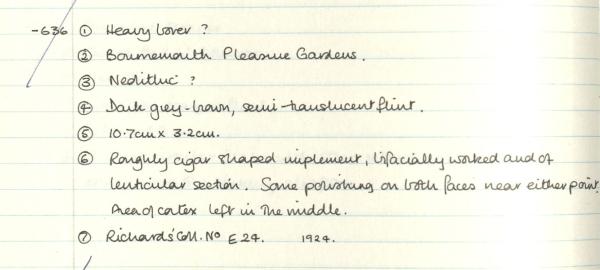 -636 ① Heavy borer ?
② Bournemouth Pleasure Gardens.
③ Neolithic ?
④ Dark grey-brown, semi-translucent flint.
⑤ 10.7cm x 3.2cm.
⑥ Roughly cigar shaped implement, bifacially worked and of
lenticular section. Some polishing on both faces near either point.
Area of cortex left in the middle.
⑦ Richards' Coll. No E24. 1924.